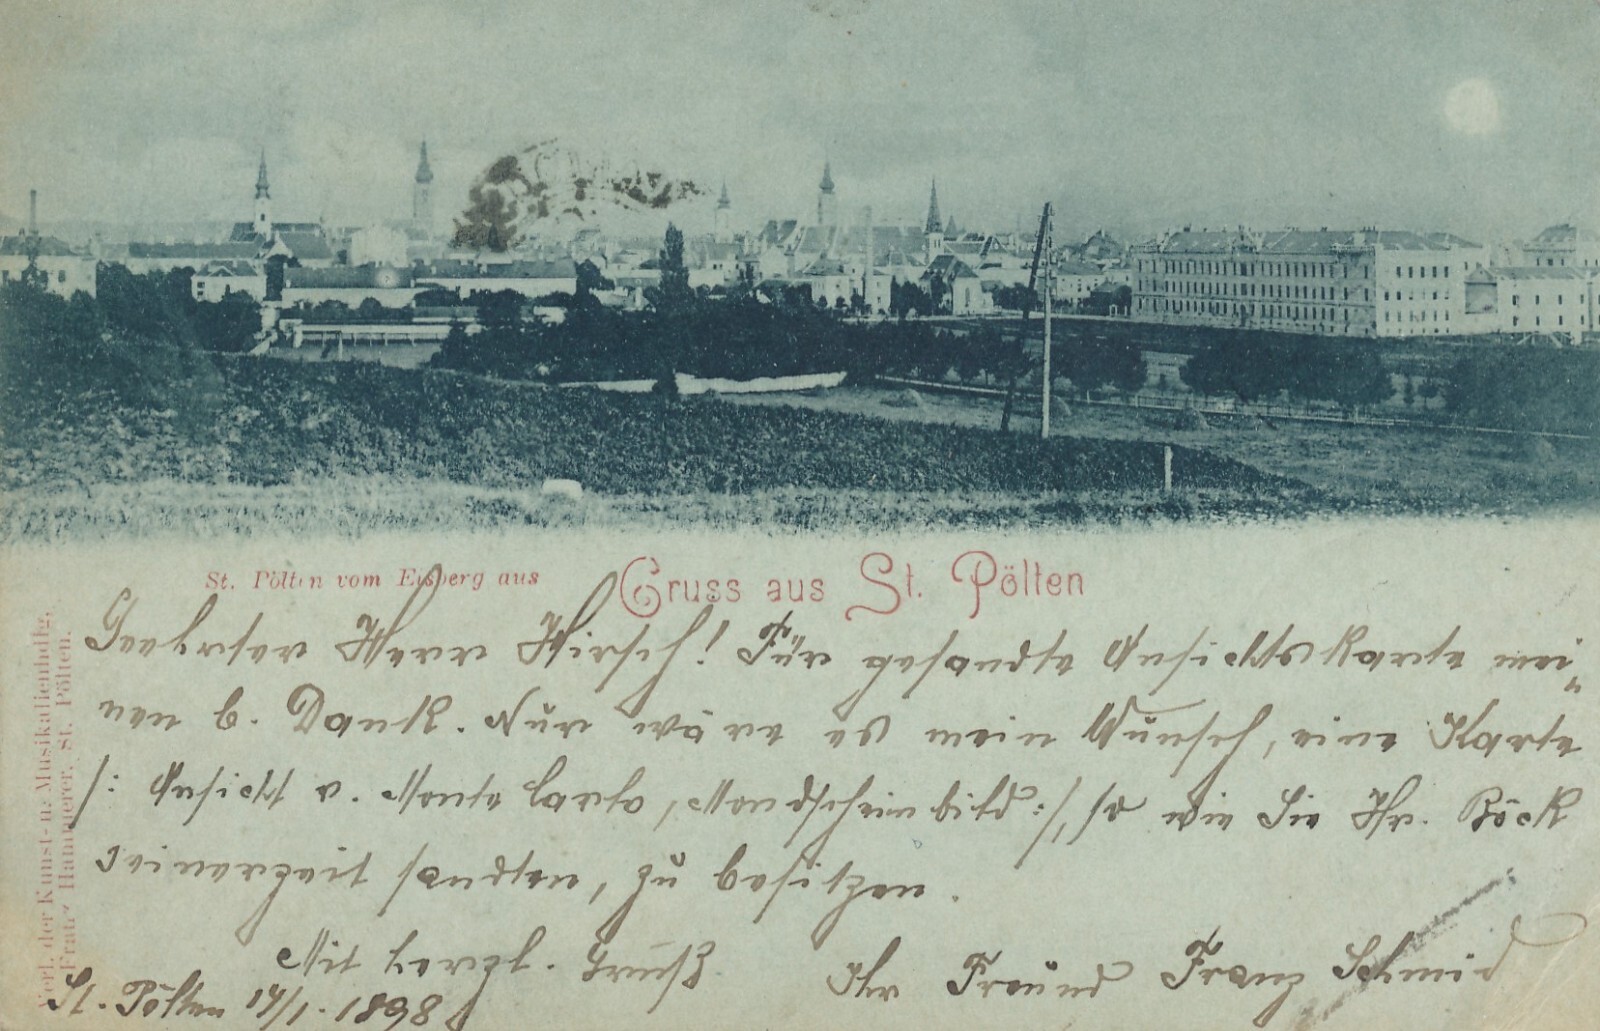 St. Pölten vom Eisberg aus
Gruss aus St. Pölten
Geehrter Herr Hirsch! Für gesandte Ansichtskarte mei-
nen b. Dank. Nur wäre es mein Wunsch, eine Karte
/: Ansicht v. Monte Carlo, Mondscheinbild :/, so wie Sie Hr. Böck
seinerzeit sandten, zu besitzen.
Mit herzl. Gruß
Ihr Freund Franz Schmid
St. Pölten 14/1. 1898
Verl. der Kunst- u. Musikalienhdlg.
Franz Hammerer, St. Pölten.